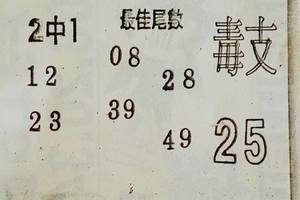 2中1 最佳尾數 毒支
12 08 28
23 39 49 25